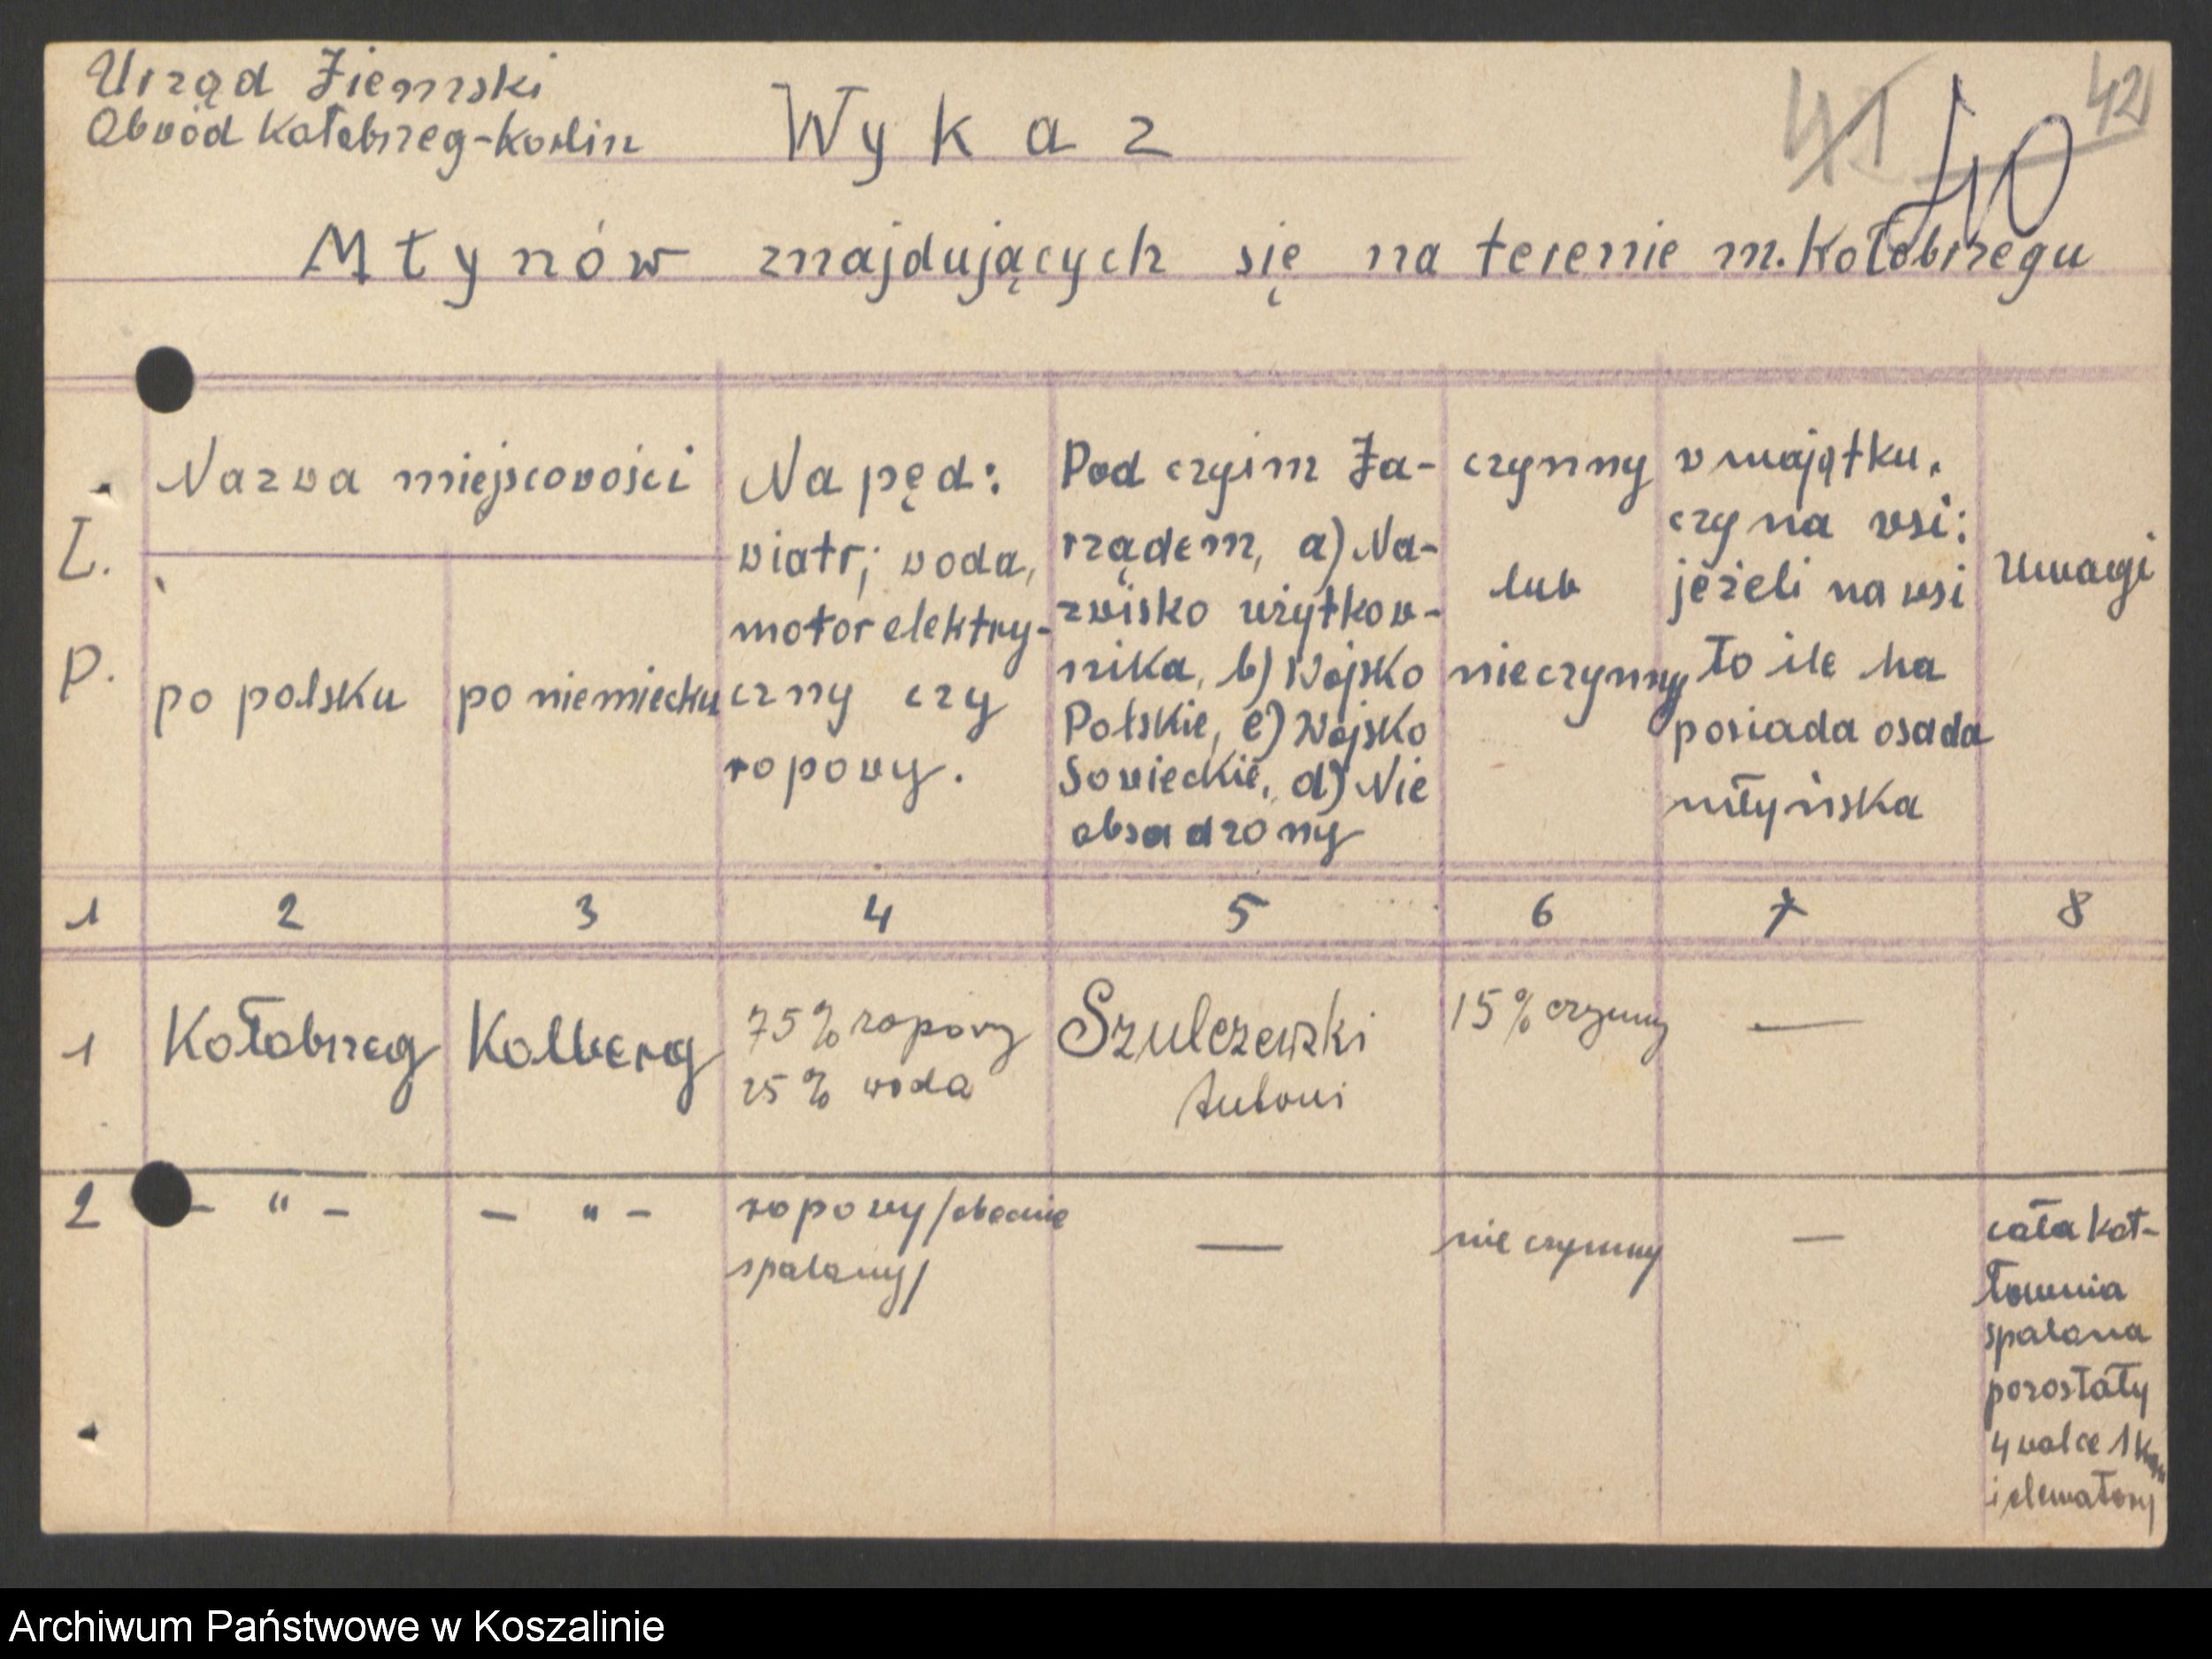 Urząd Ziemski
Obwód Kołobrzeg-Korlin
Wykaz
41 40 42
Młynów znajdujących się na terenie m. Kołobrzegu
L.
P.
Nazwa miejscowości
po polsku
po niemiecku
Napęd:
wiatr; woda,
motor elektry-
czny czy
ropowy.
Pod czyim Za-
rządem, a) Na-
zwisko użytkow-
nika, b) Wojsko
Polskie, c) Wojsko
Sowieckie, d) Nie
obsadzony
czynny
lub
nieczynny
w majątku,
czy na wsi:
jeżeli na wsi
to ile ha
posiada osada
młyńska
Uwagi
1 2 3 4 5 6 7 8
1
Kołobrzeg
Kolberg
75% ropowy
25% woda
Szulczewski
Antoni
15% czynny
—
2
- " -
- " -
ropowy /obecnie
spalony/
—
nie czynny
—
cała kot-
łownia
spalona
pozostały
4 walce 1
i elewatory
Archiwum Państwowe w Koszalinie